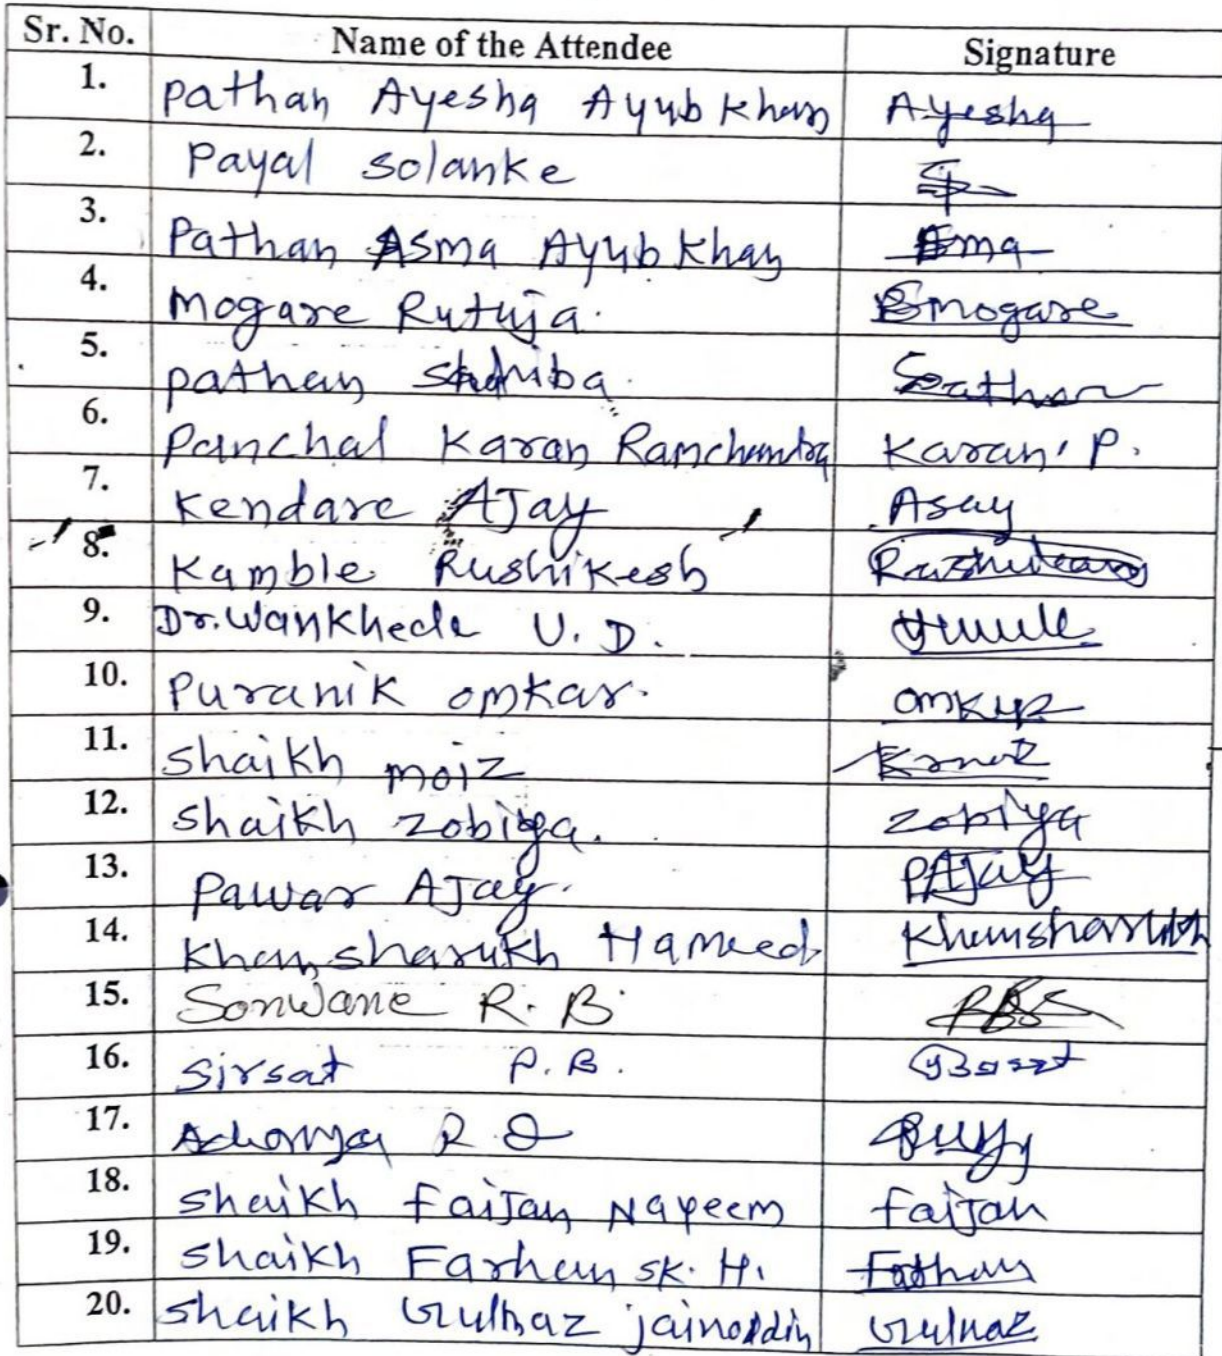 Sr. No. Name of the Attendee Signature
1. Pathan Ayesha Ayub Khan Ayesha
2. Payal Solanke
3. Pathan Asma Ayub Khan Asma
4. Mogare Rutuja. Rmogare
5. Pathan
6. Panchal Karan Ramchandra Karan. P.
7. Kendare AJay Ajay
8. Kamble Rushikesh
9. Dr. Wankhede U. D.
10. Puranik omkar. omkar
11. Shaikh moiz
12. Shaikh Zobiya. Zobiya
13. Pawar AJay. PAJay
14. Khan sharukh Hameed Khansharukh
15. Sonwane R. B.
16. Sirsat P. B.
17. Acharya R.
18. Shaikh Faijan Nayeem Faijan
19. Shaikh Farhan SK. H. Farhan
20. Shaikh Gulnaz jainoddin Gulnaz